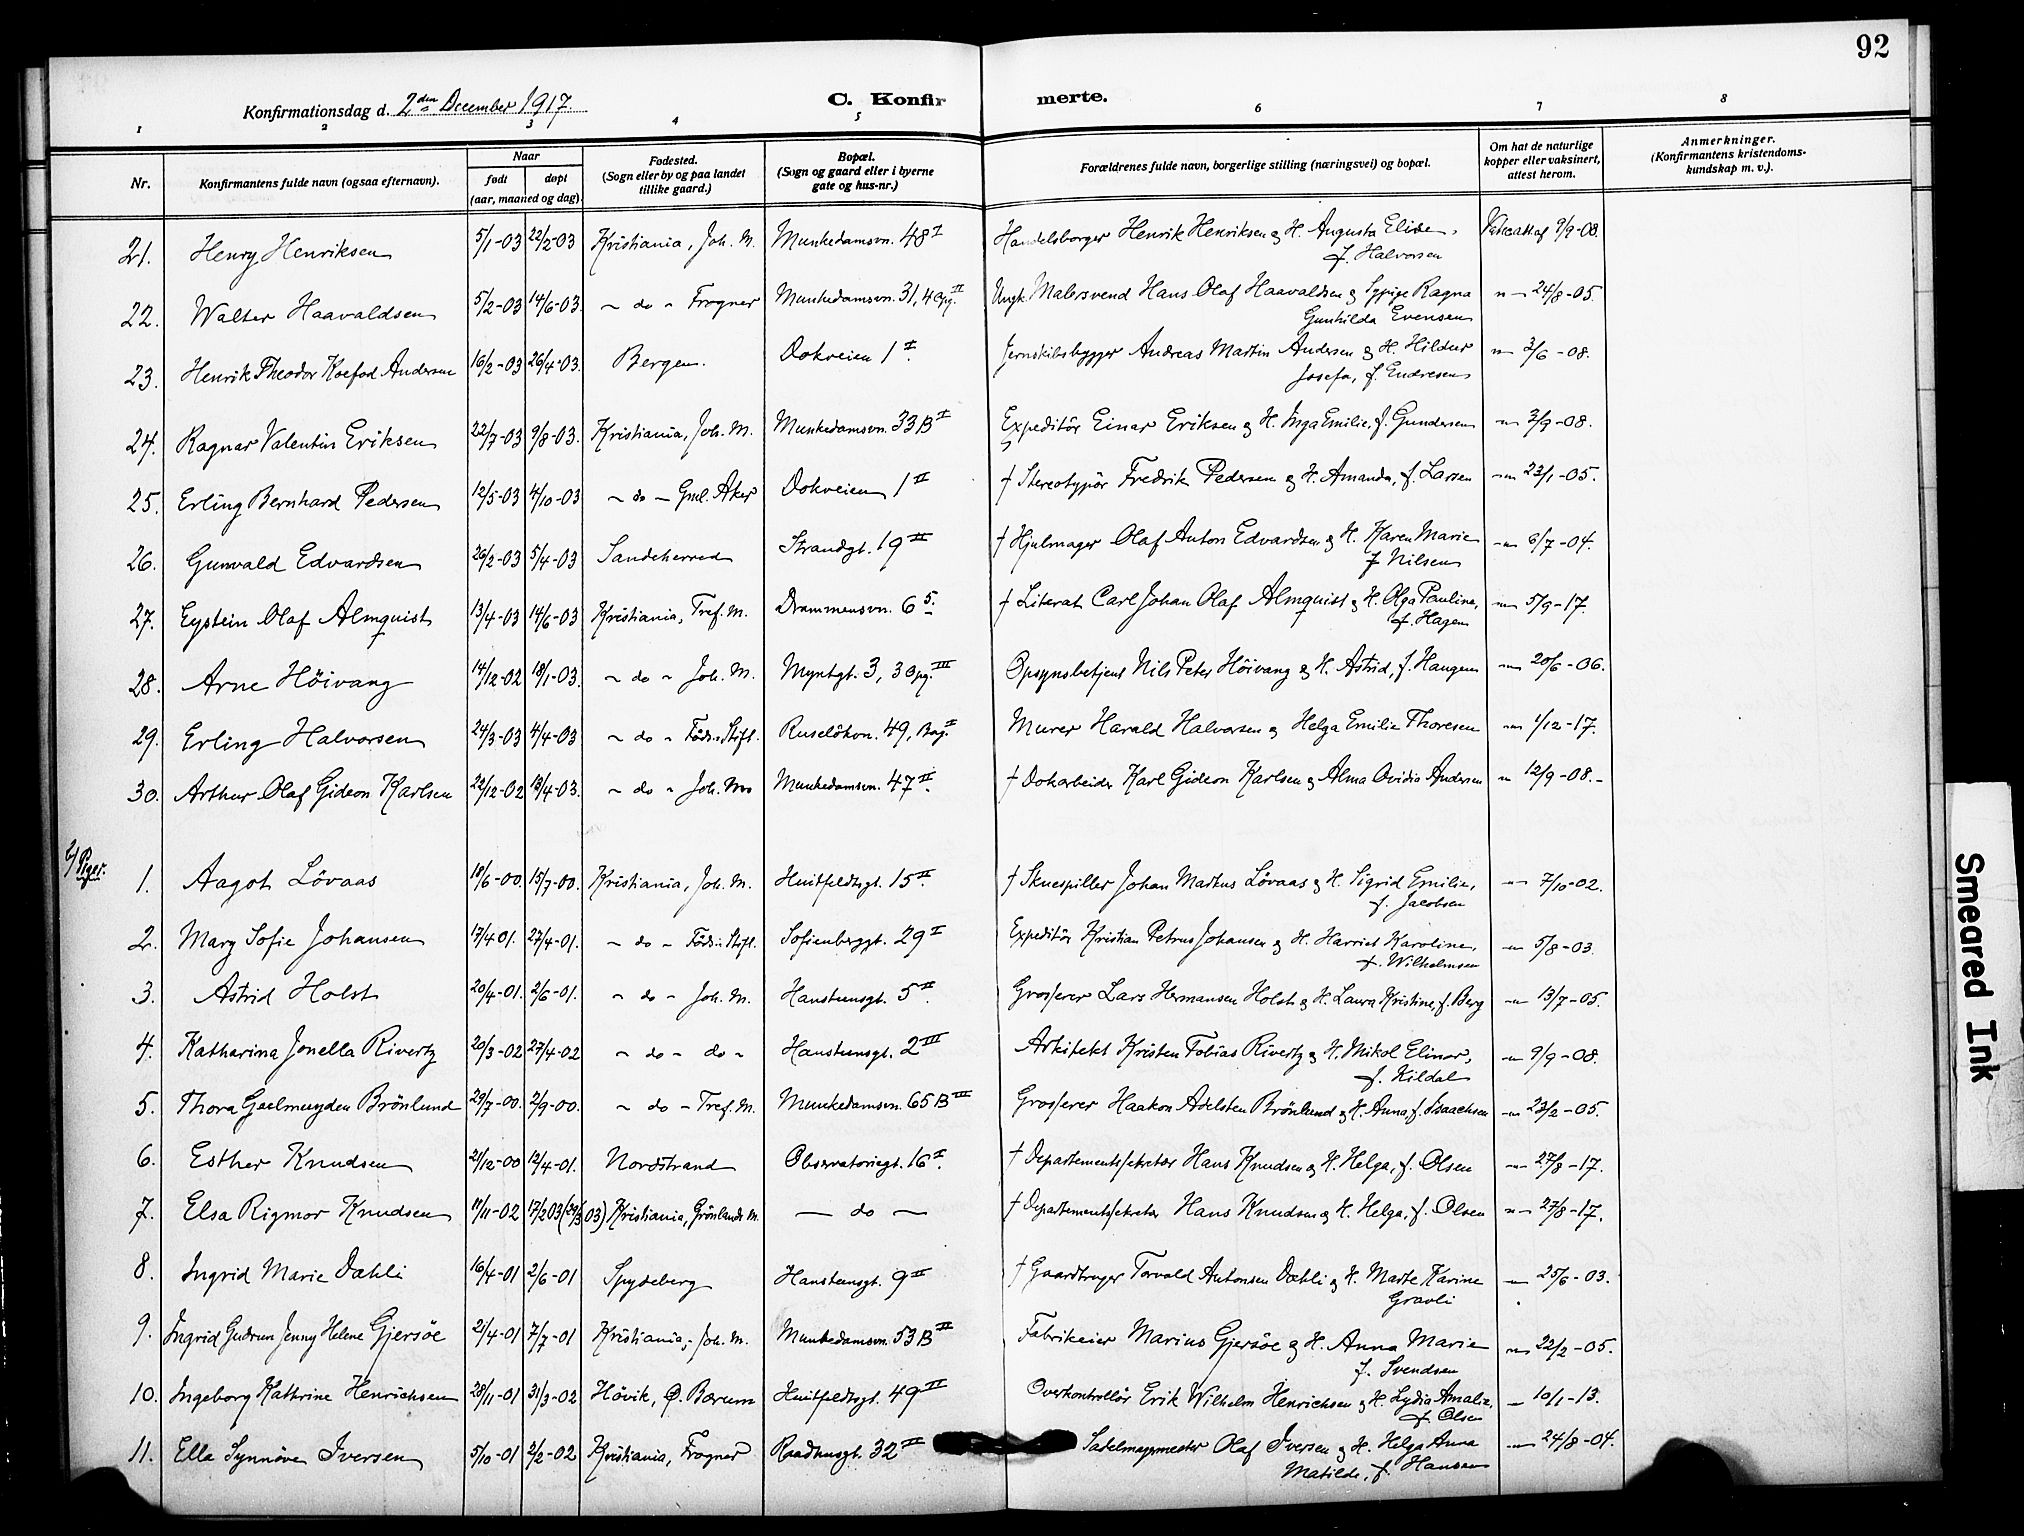 92
Konfirmationsdag d. 2den December 1917.
C. Konfirmerte.
1 2 3 4 5 6 7 8
Nr.
Konfirmantens fulde navn (ogsaa efternavn).
Naar
født
døpt
(aar, maaned og dag).
Fødested.
(Sogn eller by og paa landet
tillike gaard.)
Bopæl.
(Sogn og gaard eller i byerne
gate og hus-nr.)
Forældrenes fulde navn, borgerlige stilling (næringsvei) og bopæl.
Om hat de naturlige
kopper eller vaksinert,
attest herom.
Anmerkninger.
(Konfirmantens kristendoms-
kundskap m. v.).
21. Henry Henriksen 5/1-03 22/2-03 Kristiania, Joh. M. Munkedamsvn. 48 I Handelsborger Henrik Henriksen & H. Augusta Elise, 9/9-08.
f. Halvorsen
22. Walter Haavaldsen 5/2-03 14/6-03. - do - Frogner Munkedamsvn. 31, 4 opg. II Ungk. Malersvend Hans Olaf Haavaldsen & Ragna -"- 24/8-05.
Gunhilda Evensen
23. Henrik Theodor Koefod Andersen 16/2-03 26/4-03. Bergen. Dokveien 1 I. Jernskibsbygger Andreas Martin Andersen & H. Hildur -"- 3/6-08.
Josefa, f. Endresen
24. Ragnar Valentin Eriksen 22/7-03 9/8-03. Kristiania, Joh. M. Munkedamsvn. 33 B I Expeditör Einar Eriksen & H. Inga Emilie, f. Gundersen -"- 3/9-08.
25. Erling Bernhard Pedersen 12/5-03 4/10-03 - do - Gml. Aker Dokveien 1 II † Stereotypör Fredrik Pedersen & H. Amanda, f. Larsen -"- 23/1-05.
26. Gunvald Edvardsen 26/2-03 5/4-03 Sandeherred Strandgt. 19 III † Hjulmager Olaf Anton Edvardsen & H. Karen Marie -"- 6/7-04.
f Nilsen
27. Eystein Olaf Almquist 13/4-03 14/6-03 Kristiania, Tref. M. Drammensvn. 6 5. † Literat Carl Johan Olaf Almquist & H. Olga Pauline, -"- 5/9-17.
f. Hagen
28. Arne Höivang 14/12-02 18/1-03. - do - Joh. M. Myntgt. 3, 3 opg. III Opsynsbetjent Nils Peter Höivang & H. Astrid, f. Haugen -"- 20/6-06.
29. Erling Halvorsen 24/3-03 4/4-03 - do - Föds. Stift. Ruselökvn. 49, Bag. I Murer Harald Halvorsen & Helga Emilie Thoresen -"- 1/12-17.
30. Arthur Olaf Gideon Karlsen 22/12-02 13/4-03. - do - Joh. M. Munkedamsvn. 47 II. † Dokarbeider Karl Gideon Karlsen & Alma Ovidia Andersen -"- 12/9-08.-
b/ Piger.
1. Aagot Lövaas 18/6-00. 15/7-00. Kristiania, Joh. M. Huitfeldtsgt. 15 II. † Skuespiller Johan Markus Lövaas & H. Sigrid Emilie, -"- 7/10-02.
f. Jacobsen
2. Mary Sofie Johansen 17/4 01. 27/4-01. - do - Föds. Stift. Sofienberggt. 29 I Expeditör Kristian Petrus Johansen & H. Harriet Karoline, -"- 5/8-03.
f. Wilhelmsen
3. Astrid Holst 20/4-01. 2/6-01. - do - Joh. M. Hansteensgt. 5 II. Grosserer Lars Hermansen Holst & H. Laura Kristine, f. Berg -"- 13/7-05.
4. Katharina Jonella Rivertz 20/3-02 27/4-02 - do - do - Hansteensgt. 2 III Arkitekt Kristen Tobias Rivertz & H. Mikol Elinor, -"- 9/9-08.
f. Kildal
5. Thora Geelmuyden Brönlund 29/7-00. 2/9-00. - do - Tref. M. Munkedamsvn. 65 B III Grosserer Haakon Adelsten Brönlund & H. Anna, f. Isaachsen -"- 23/2-05.
6. Esther Knudsen 21/12-00 12/4-01. Nordstrand Observatoriegt. 16 I. † Departementssekretær Hans Knudsen & H. Helga, f. Olsen -"- 27/8-17.
7. Elsa Rigmor Knudsen 11/11-02 17/2 03 (29/3 03) Kristiania, Grönlands M. - do - † Departementssekretær Hans Knudsen & H. Helga, f. Olsen -"- 27/8-17.
8. Ingrid Marie Dæhli 16/4-01 2/6-01 Spydeberg Hansteensgt. 9 II † Gaardbruger Torvald Antonsen Dæhli & H. Marte Karine -"- 25/6-03.
Gravli
9. Ingrid Gudrun Jenny Helene Gjersöe 2/4-01 7/7-01 Kristiania, Joh. M. Munkedamsvn. 53 B II Fabrikeier Marius Gjersöe & H. Anna Marie -"- 22/2-05.
f. Svendsen
10. Ingeborg Kathrine Henrichsen 28/11-01 31/3-02 Hövik, Ø. Bærum Huitfeldtsgt. 49 II Overkontrollör Erik Wilhelm Henrichsen & H. Lydia Amalie, -"- 10/1-13.
f. Olsen
11. Ella Synnöve Iversen 5/10-01 2/2-02 Kristiania, Frogner Raadhusgt. 32 II Sadelmagermester Olaf Iversen & H. Helga Anna -"- 24/8-04.
Matilde, f. Hansen
Smeared Ink